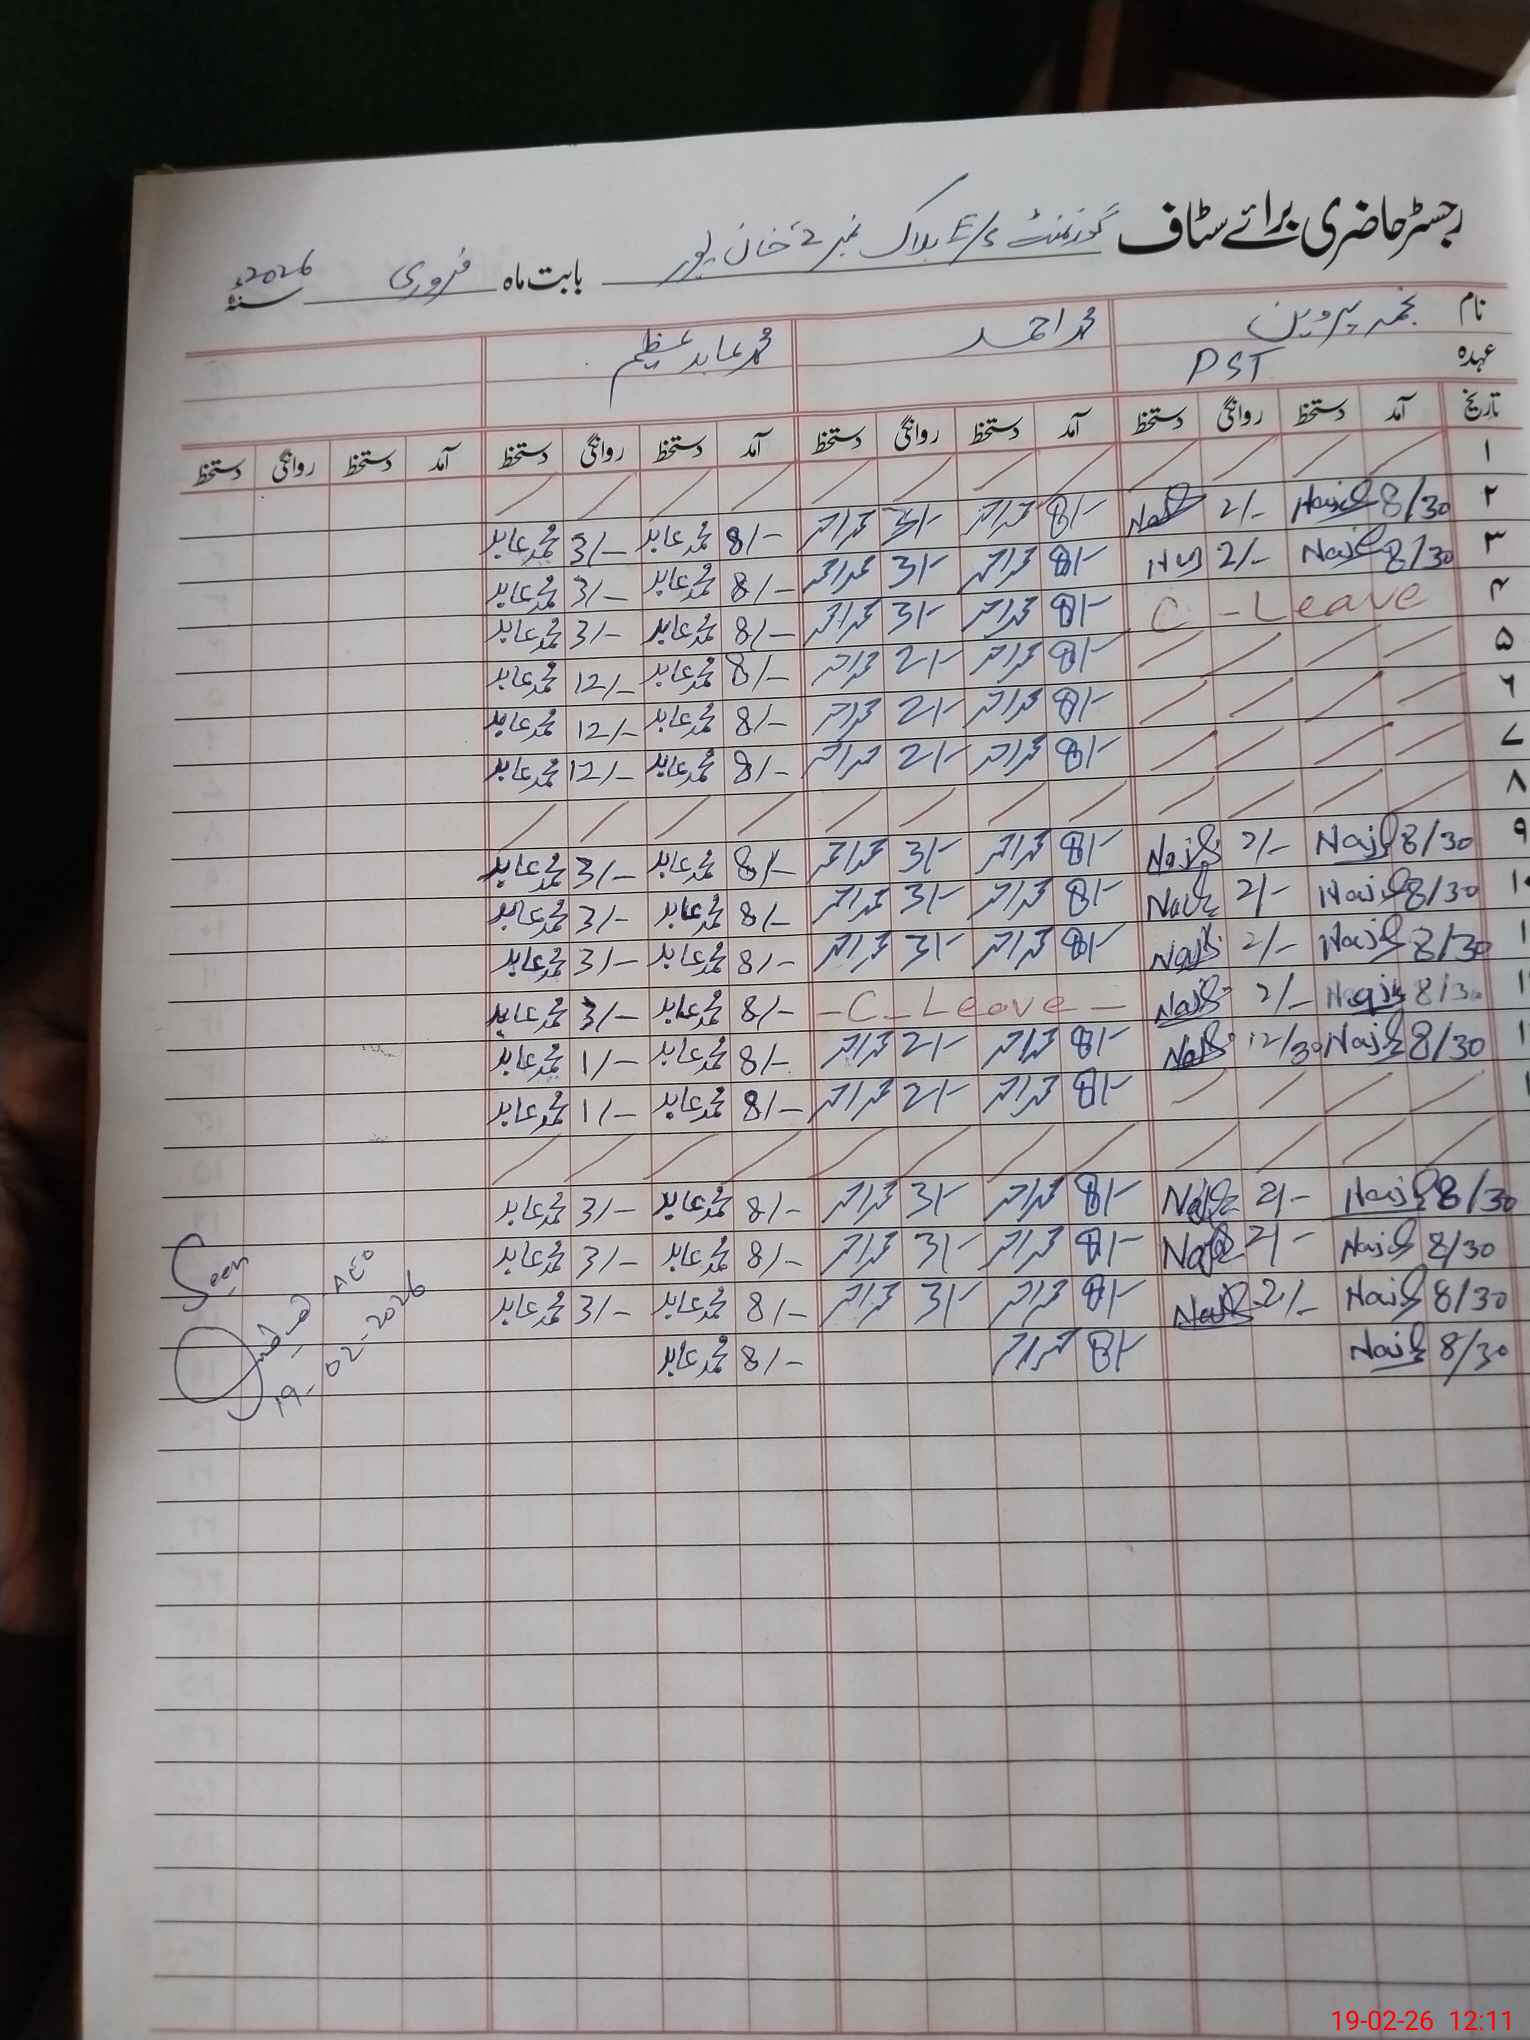 رجسٹر حاضری برائے سٹاف گورنمنٹ E/S بلاک نمبر 2 خان پور بابت ماہ فروری سنہ 2026ء
نام نجمہ پروین محمد احمد محمد عابد عظیم
عہدہ PST
تاریخ آمد دستخط روانگی دستخط آمد دستخط روانگی دستخط آمد دستخط روانگی دستخط آمد دستخط روانگی دستخط
۱
۲ 8/30 2/- 8/- محمد احمد 3/- محمد احمد 8/- محمد عابد 3/- محمد عابد
۳ 8/30 2/- 8/- محمد احمد 3/- محمد احمد 8/- محمد عابد 3/- محمد عابد
۴ C - Leave 8/- محمد احمد 3/- محمد احمد 8/- محمد عابد 3/- محمد عابد
۵ 8/- محمد احمد 2/- محمد احمد 8/- محمد عابد 12/- محمد عابد
۶ 8/- محمد احمد 2/- محمد احمد 8/- محمد عابد 12/- محمد عابد
۷ 8/- محمد احمد 2/- محمد احمد 8/- محمد عابد 12/- محمد عابد
۸
۹ 8/30 2/- 8/- محمد احمد 3/- محمد احمد 8/- محمد عابد 3/- محمد عابد
۱۰ 8/30 2/- 8/- محمد احمد 3/- محمد احمد 8/- محمد عابد 3/- محمد عابد
8/30 2/- 8/- محمد احمد 3/- محمد احمد 8/- محمد عابد 3/- محمد عابد
8/30 2/- - C - Leave - 8/- محمد عابد 3/- محمد عابد
8/30 12/30 8/- محمد احمد 2/- محمد احمد 8/- محمد عابد 1/- محمد عابد
8/- محمد احمد 2/- محمد احمد 8/- محمد عابد 1/- محمد عابد
8/30 2/- 8/- محمد احمد 3/- محمد احمد 8/- محمد عابد 3/- محمد عابد
8/30 2/- 8/- محمد احمد 3/- محمد احمد 8/- محمد عابد 3/- محمد عابد
8/30 2/- 8/- محمد احمد 3/- محمد احمد 8/- محمد عابد 3/- محمد عابد
8/30 8/- محمد احمد 8/- محمد عابد
Seen
AEO
19-02-2026
19-02-26 12:11